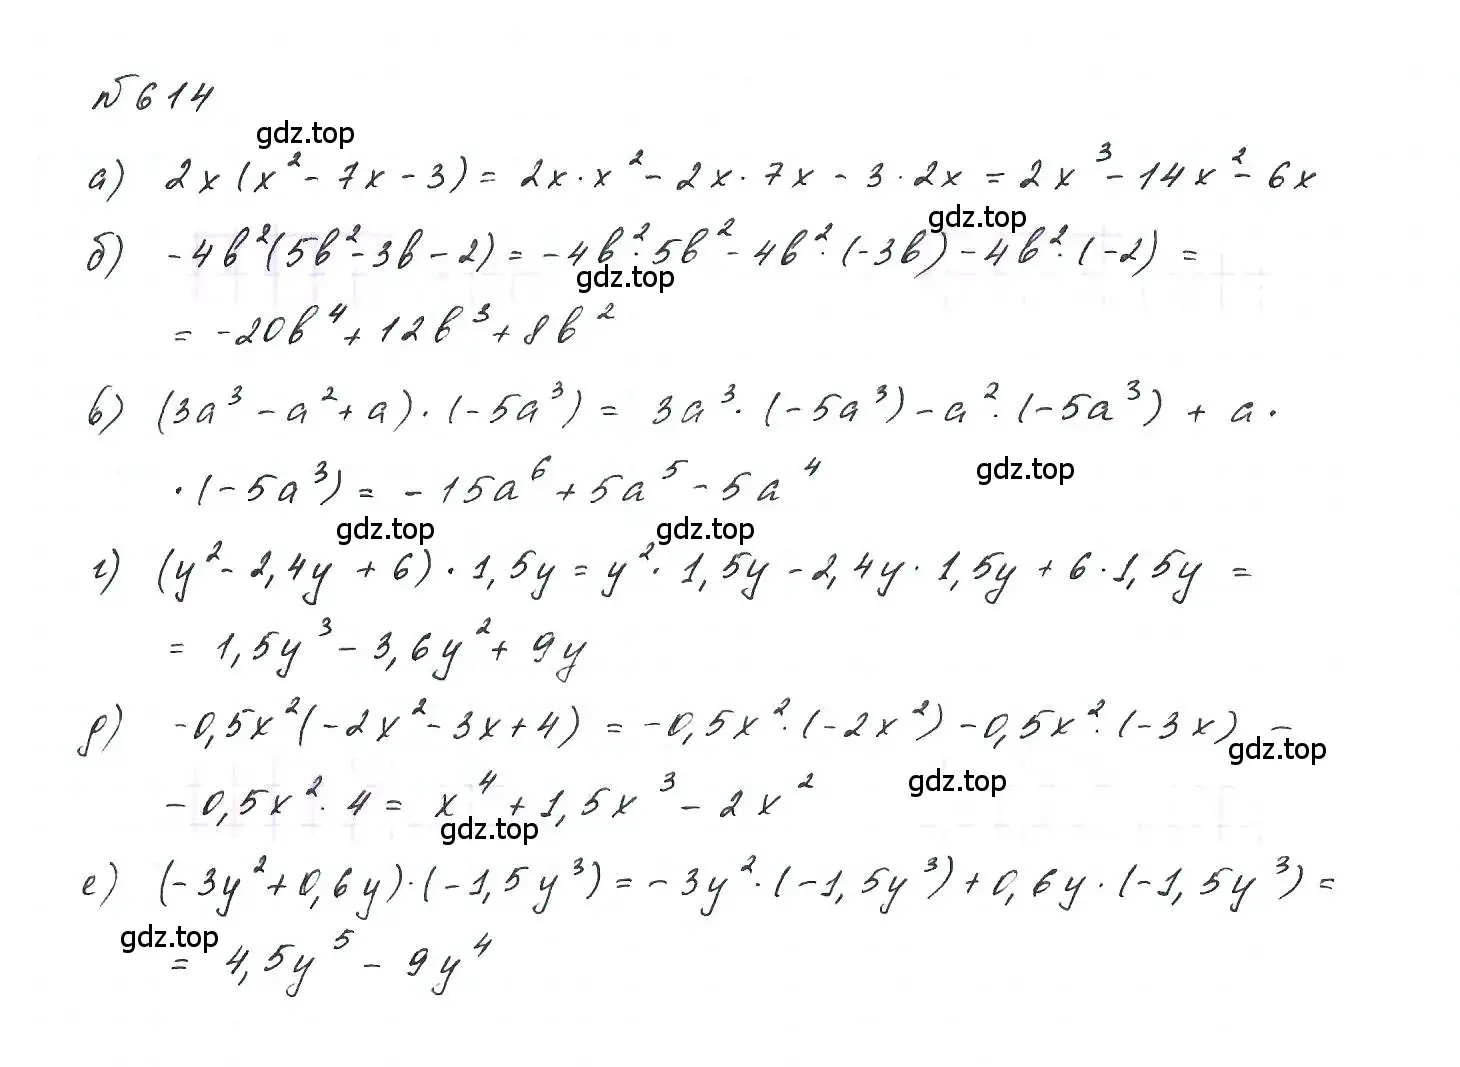 № 614
gdz.top
а) 2x (x² - 7x - 3) = 2x · x² - 2x · 7x - 3 · 2x = 2x³ - 14x² - 6x
gdz.top
б) -4b²(5b² - 3b - 2) = -4b² · 5b² - 4b² · (-3b) - 4b² · (-2) =
gdz.top
= -20b⁴ + 12b³ + 8b²
в) (3a³ - a² + a) · (-5a³) = 3a³ · (-5a³) - a² · (-5a³) + a ·
· (-5a³) = -15a⁶ + 5a⁵ - 5a⁴
gdz.top
gdz.top gdz.top
г) (y² - 2,4y + 6) · 1,5y = y² · 1,5y - 2,4y · 1,5y + 6 · 1,5y =
= 1,5y³ - 3,6y² + 9y
д) -0,5x²(-2x² - 3x + 4) = -0,5x² · (-2x²) - 0,5x² · (-3x) -
gdz.top
- 0,5x² · 4 = x⁴ + 1,5x³ - 2x²
gdz.top
gdz.top
е) (-3y² + 0,6y) · (-1,5y³) = -3y² · (-1,5y³) + 0,6y · (-1,5y³) =
gdz.top
= 4,5y⁵ - 9y⁴